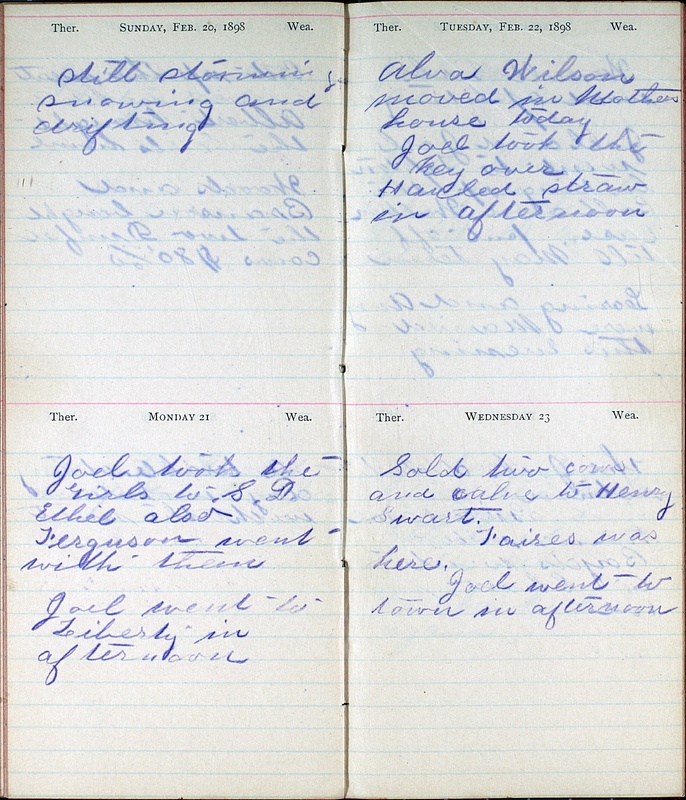 Ther. SUNDAY, FEB. 20, 1898 Wea.
still storming
snowing and
drifting
Ther. MONDAY 21 Wea.
Joel took the
girls to S. D.
Ethel also
Ferguson went
with them
Joel went to
Liberty in
afternoon
Ther. TUESDAY, FEB. 22, 1898 Wea.
Alva Wilson
moved in Mothers
house today
Joel took the
key over
Hauled straw
in afternoon
Ther. WEDNESDAY 23 Wea.
Sold two cows
and calve to Henry
Swart.
Faires was
here.
Joel went to
town in afternoon